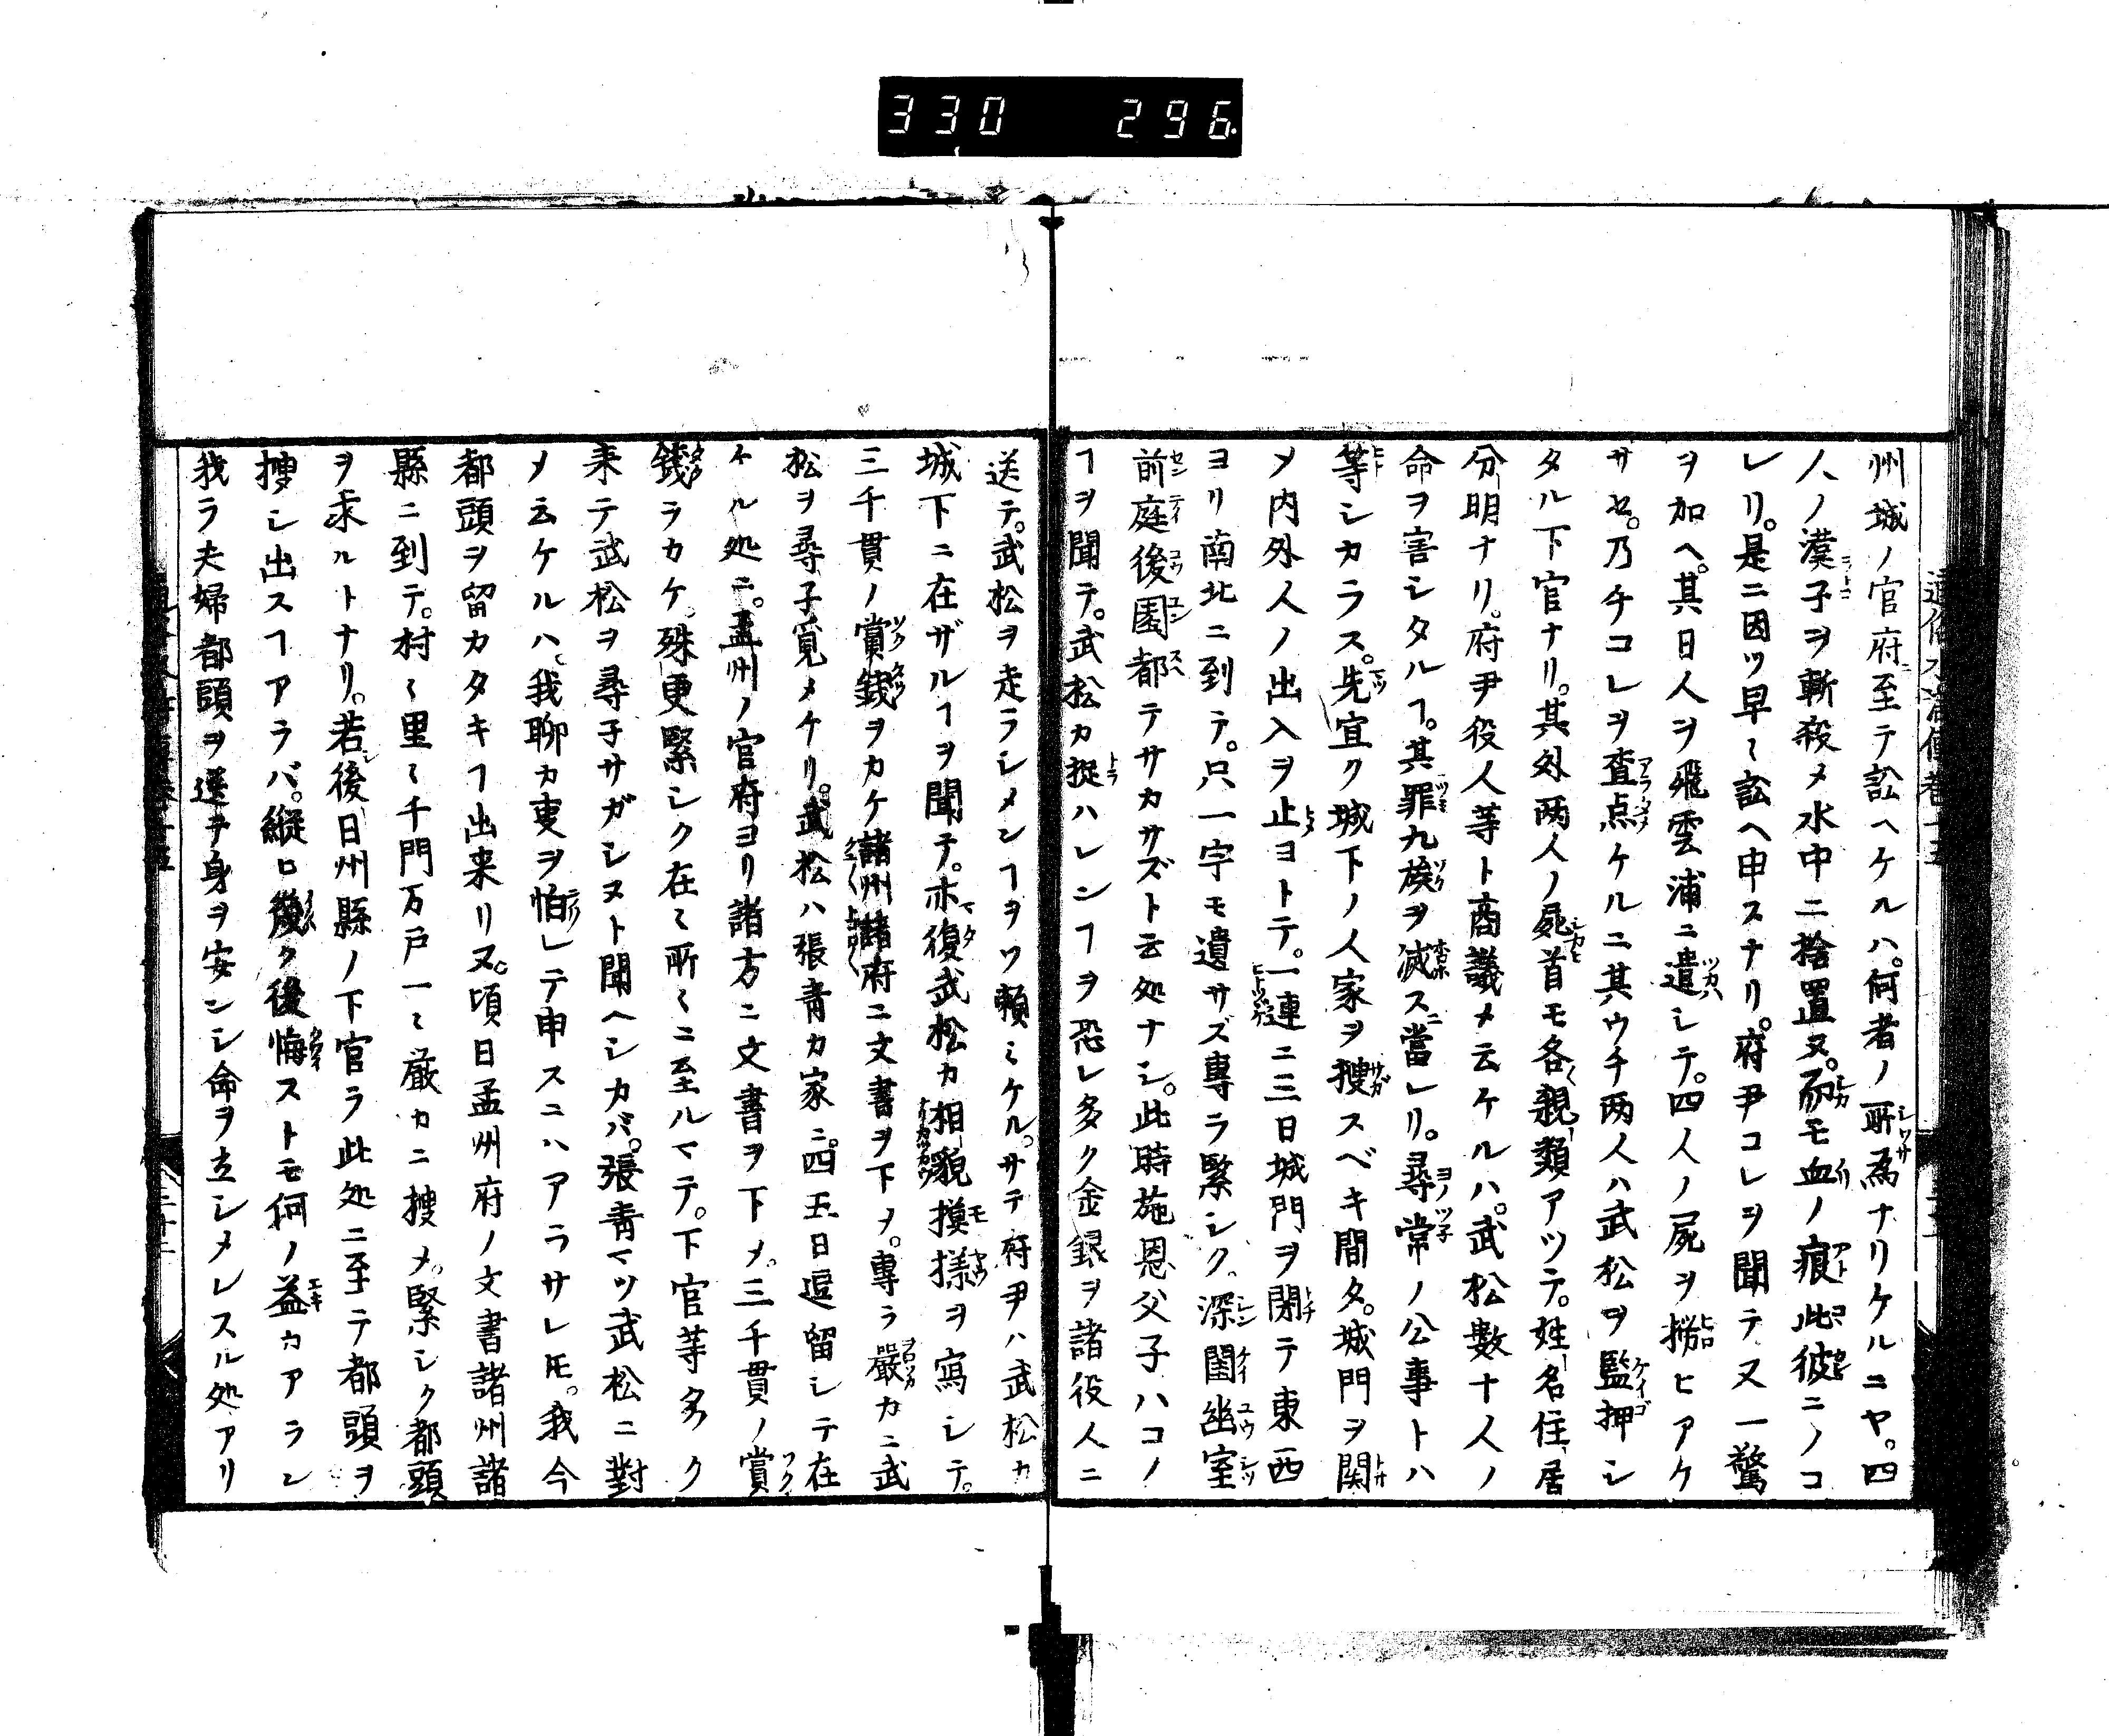 330 296
州城ノ官府ニ至テ訟ヘケルハ。何者ノ所為ナリケルニヤ。四
人ノ漢子ヲ斬殺メ水中ニ捨置ヌ。而モ血ノ痕此彼ニノコ
レリ。是ニ因ツ早〻訟ヘ申スナリ。府尹コレヲ聞テヌ一驚
ヲ加ヘ。其日人ヲ飛雲浦ニ遣シテ。四人ノ屍ヲ撈ヒアケ
サセ。乃チコレヲ査点ケルニ其ウチ两人ハ武松ヲ監押シ
タル下官ナリ。其外两人ノ屍首モ各親類アツテ。姓名住居
分明ナリ。府尹役人等ト商議メ云ケルハ。武松數十人ノ
命ヲ害シタルヿ。其罪九族ヲ滅スニ當レリ。尋常ノ公事トハ
等シカラス。先宜ク城下ノ人家ヲ捜スベキ間タ。城門ヲ関
メ内外人ノ出入ヲ止ヨトテ。一連ニ三日城門ヲ閑テ東西
ヨリ南北ニ到テ。只一宇モ遺サズ專ラ緊シク。深閨幽室
前庭後園都テサカサズト云処ナシ。此時施恩父子ハコノ
ヿヲ聞テ。武松カ捉ハレンヿヲ恐レ多ク金銀ヲ諸役人ニ
送テ。武松ヲ走ラシメンヿヲソ頼ミケル。サテ府尹ハ武松カ
城下ニ在ザルヿヲ聞テ。亦復武松カ相貌摸様ヲ寫シテ。
三千貫ノ賞錢ヲカケ諸州諸府ニ文書ヲ下メ。專ラ嚴カニ武
松ヲ尋子覓メケリ。武松ハ張青カ家ニ。四五日逗留シテ在
ケル処ニ。孟州ノ官府ヨリ諸方ニ文書ヲ下メ。三千貫ノ賞
錢ラカケ。殊更緊シク在〻所〻ニ至ルマテ。下官等多ク
来テ武松ヲ尋子サガシヌト聞ヘシカバ。張青マツ武松ニ對
メ云ケルハ。我聊カ叓ヲ怕レテ申スニハアラサレ𪜈。我今
都頭ヲ留カタキヿ出来リヌ。頃日孟州府ノ文書諸州諸
縣ニ到テ。村〻里〻千門万戸一〻厳カニ捜メ。緊シク都頭
ヲ求ルトナリ。若後日州縣ノ下官ラ此処ニ至テ都頭ヲ
捜シ出スヿアラバ。縦ヒ後ク後悔ストモ何ノ益カアラン
我ラ夫婦都頭ヲ送テ身ヲ安ンシ命ヲ立シメレスル処アリ